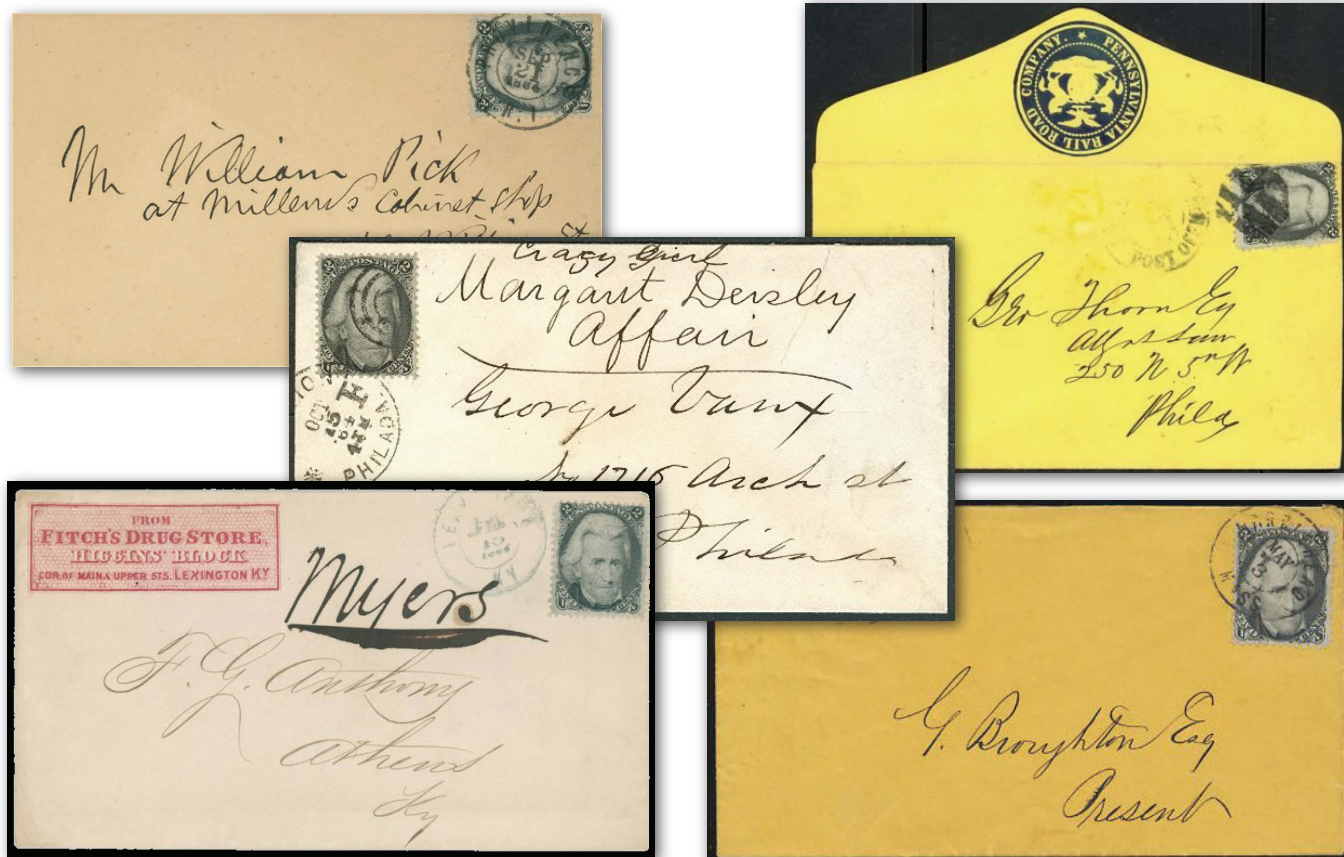 SEP
21
Mr William Pick
at Millend's Cabinet Shop
PENNSYLVANIA RAIL ROAD COMPANY.
POST OFFICE
Geo Thorn Esq
250 N 5th St
Phila
Crazy Girl
Margaret Dersley
Affair
George Vaux
No 1716 Arch st
Philada
U POSTAGE
OCT
15
PHILADA.
FROM
FITCH'S DRUG STORE,
HIGGINS' BLOCK
COR OF MAIN & UPPER STS. LEXINGTON KY
Myers
F. G. Anthony
Athens
Ky
MAY
3
G. Broughton Esq
Present